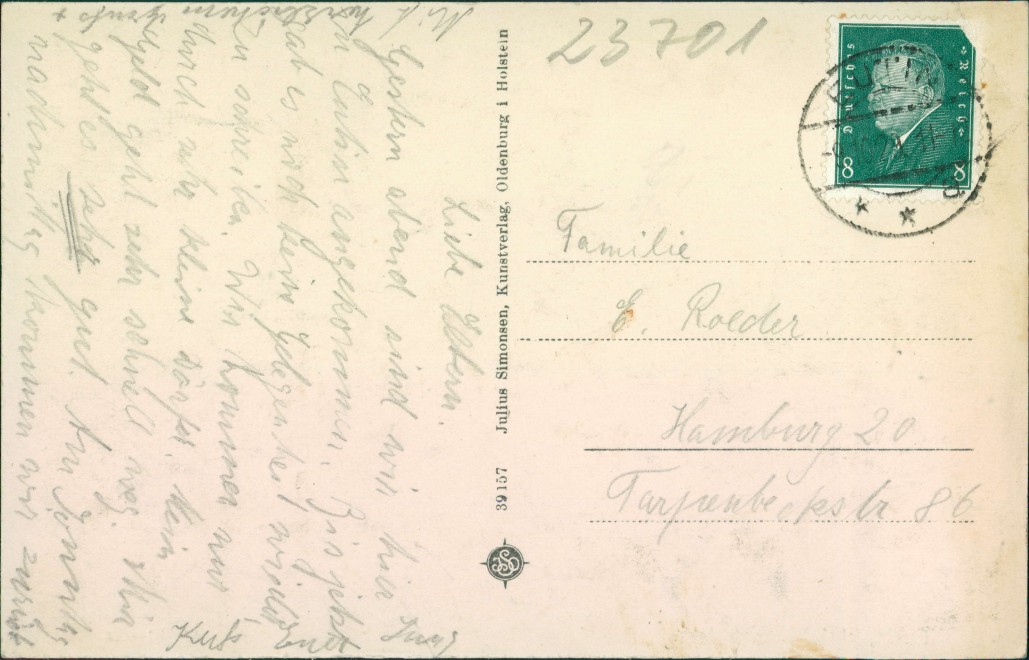 Liebe Eltern!
Gestern abend sind wir hier
in Eutin angekommen. Bis jetzt
gab es noch keine Gelegenheit
zu schreiben. Wir kommen nur
durch sehr kleine Dörfer. Mein
Geld geht sehr schnell weg. Mir
geht es sehr gut. Am Sonntag
nachmittag kommen wir zurück
Mit
herzlichem
Gruß +
Kuß
Julius Simonsen, Kunstverlag, Oldenburg i Holstein
39157
JSO
23701
Deutsches Reich
8 8
EUTIN
Familie
E. Roeder
Hamburg 20
Tarpenbeckstr 86